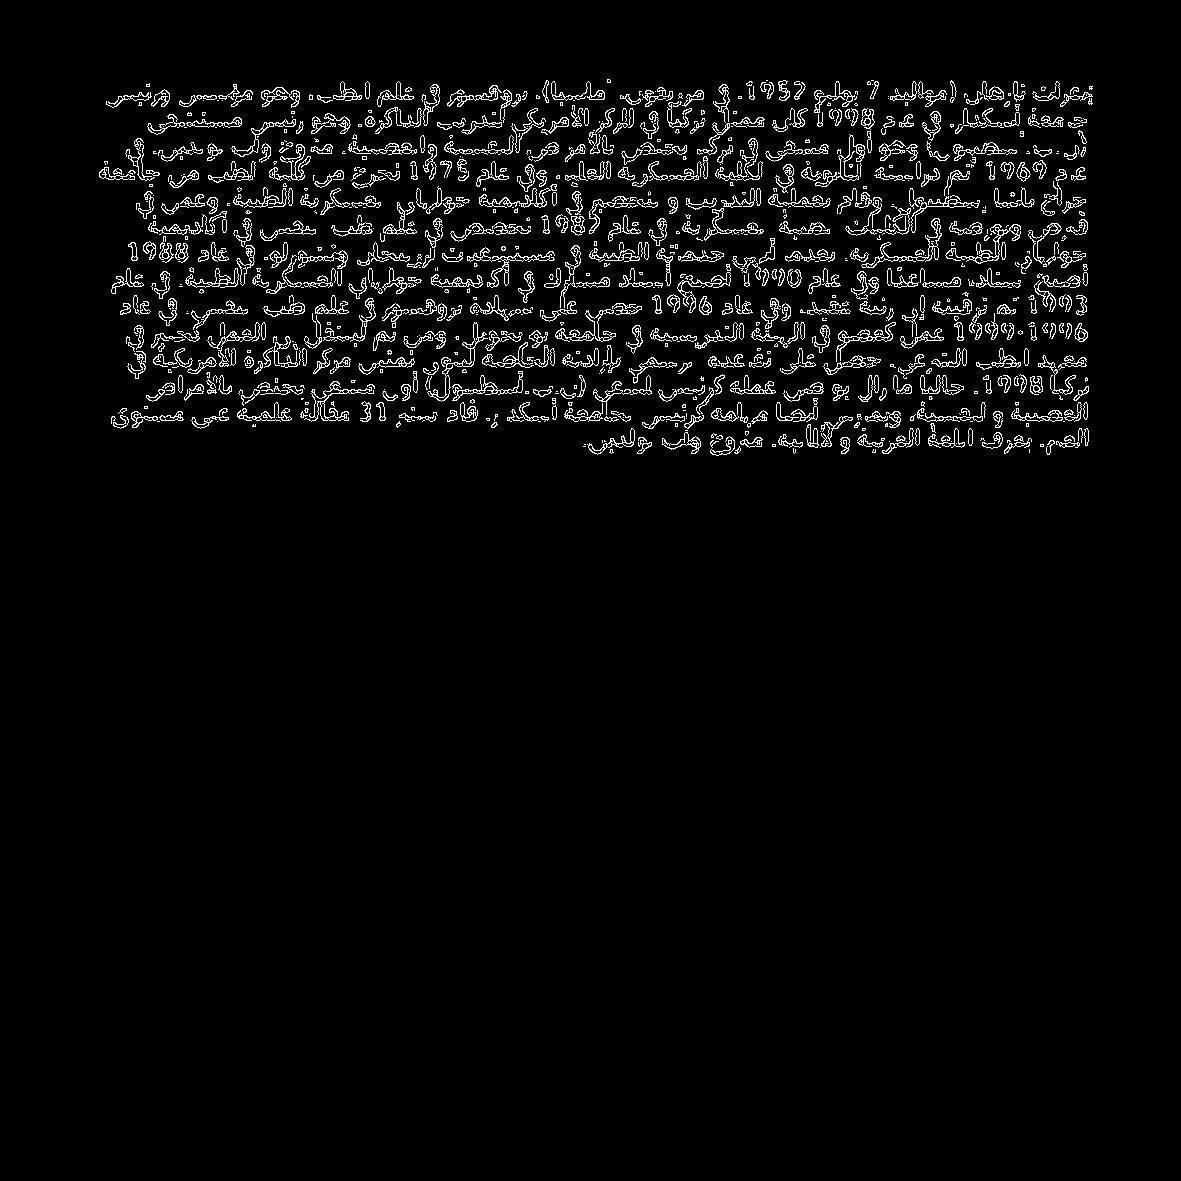 نيفزات تارهان (مواليد 7 يوليو 1952. في مرزيفون، أماسيا). بروفسور في علم الطب. وهو مؤسس ورئيس
جامعة أسكدار. في عام 1998 كان ممثل تركيا في المركز الأمريكي لتدريب الذاكرة. وهو رئيس مستشفى
(ن.ب. إسطنبول) وهو أول مشفى في تركيا يختص بالأمراض النفسية والعصبية. متزوج وأب لولدين. في
عام 1969 أتم دراسته الثانوية في الكلية العسكرية العليا. وفي عام 1975 تخرج من كلية الطب من جامعة
جراح باشا إسطنبول. وقام بعملية التدريب و التحضير في أكاديمية جولهاني العسكرية الطبية. وعمل في
قبرص وبورصة في الكليات الطبية العسكرية. في عام 1982 تخصص في علم طب النفس في أكاديمية
جولهاني الطبية العسكرية. بعدها أدى خدماته الطبية في مستشفيات أرزينجان وتشورلو. في عام 1988
أصبح أستاذا مساعدًا وفي عام 1990 أصبح أستاذ مشارك في أكاديمية جولهاني العسكرية الطبية. في عام
1993 تم ترقيته إلى رتبة عقيد. وفي عام 1996 حصل على شهادة بروفسور في علم طب النفس. في عام
1996-1999 عمل كعضو في الهيئة التدريسية في جامعة يو يجويل. ومن ثم لينتقل إلى العمل كخبير في
معهد الطب الشرعي. حصل على تقاعده الرسمي بإرادته الخاصة ليتولى تمثيل مركز الذاكرة الأمريكية في
تركيا 1998. حالياً ما زال يواصل عمله كرئيس لمشفى (ن.ب.إسطنبول) أول مشفى يختص بالأمراض
العصبية و النفسية، ويمارس أيضا مهامه كرئيس بجامعة أسكدار. قام بنشر 31 مقالة علمية على مستوى
العالم. يعرف اللغة العربية و الألمانية. متزوج وأب لولدين.